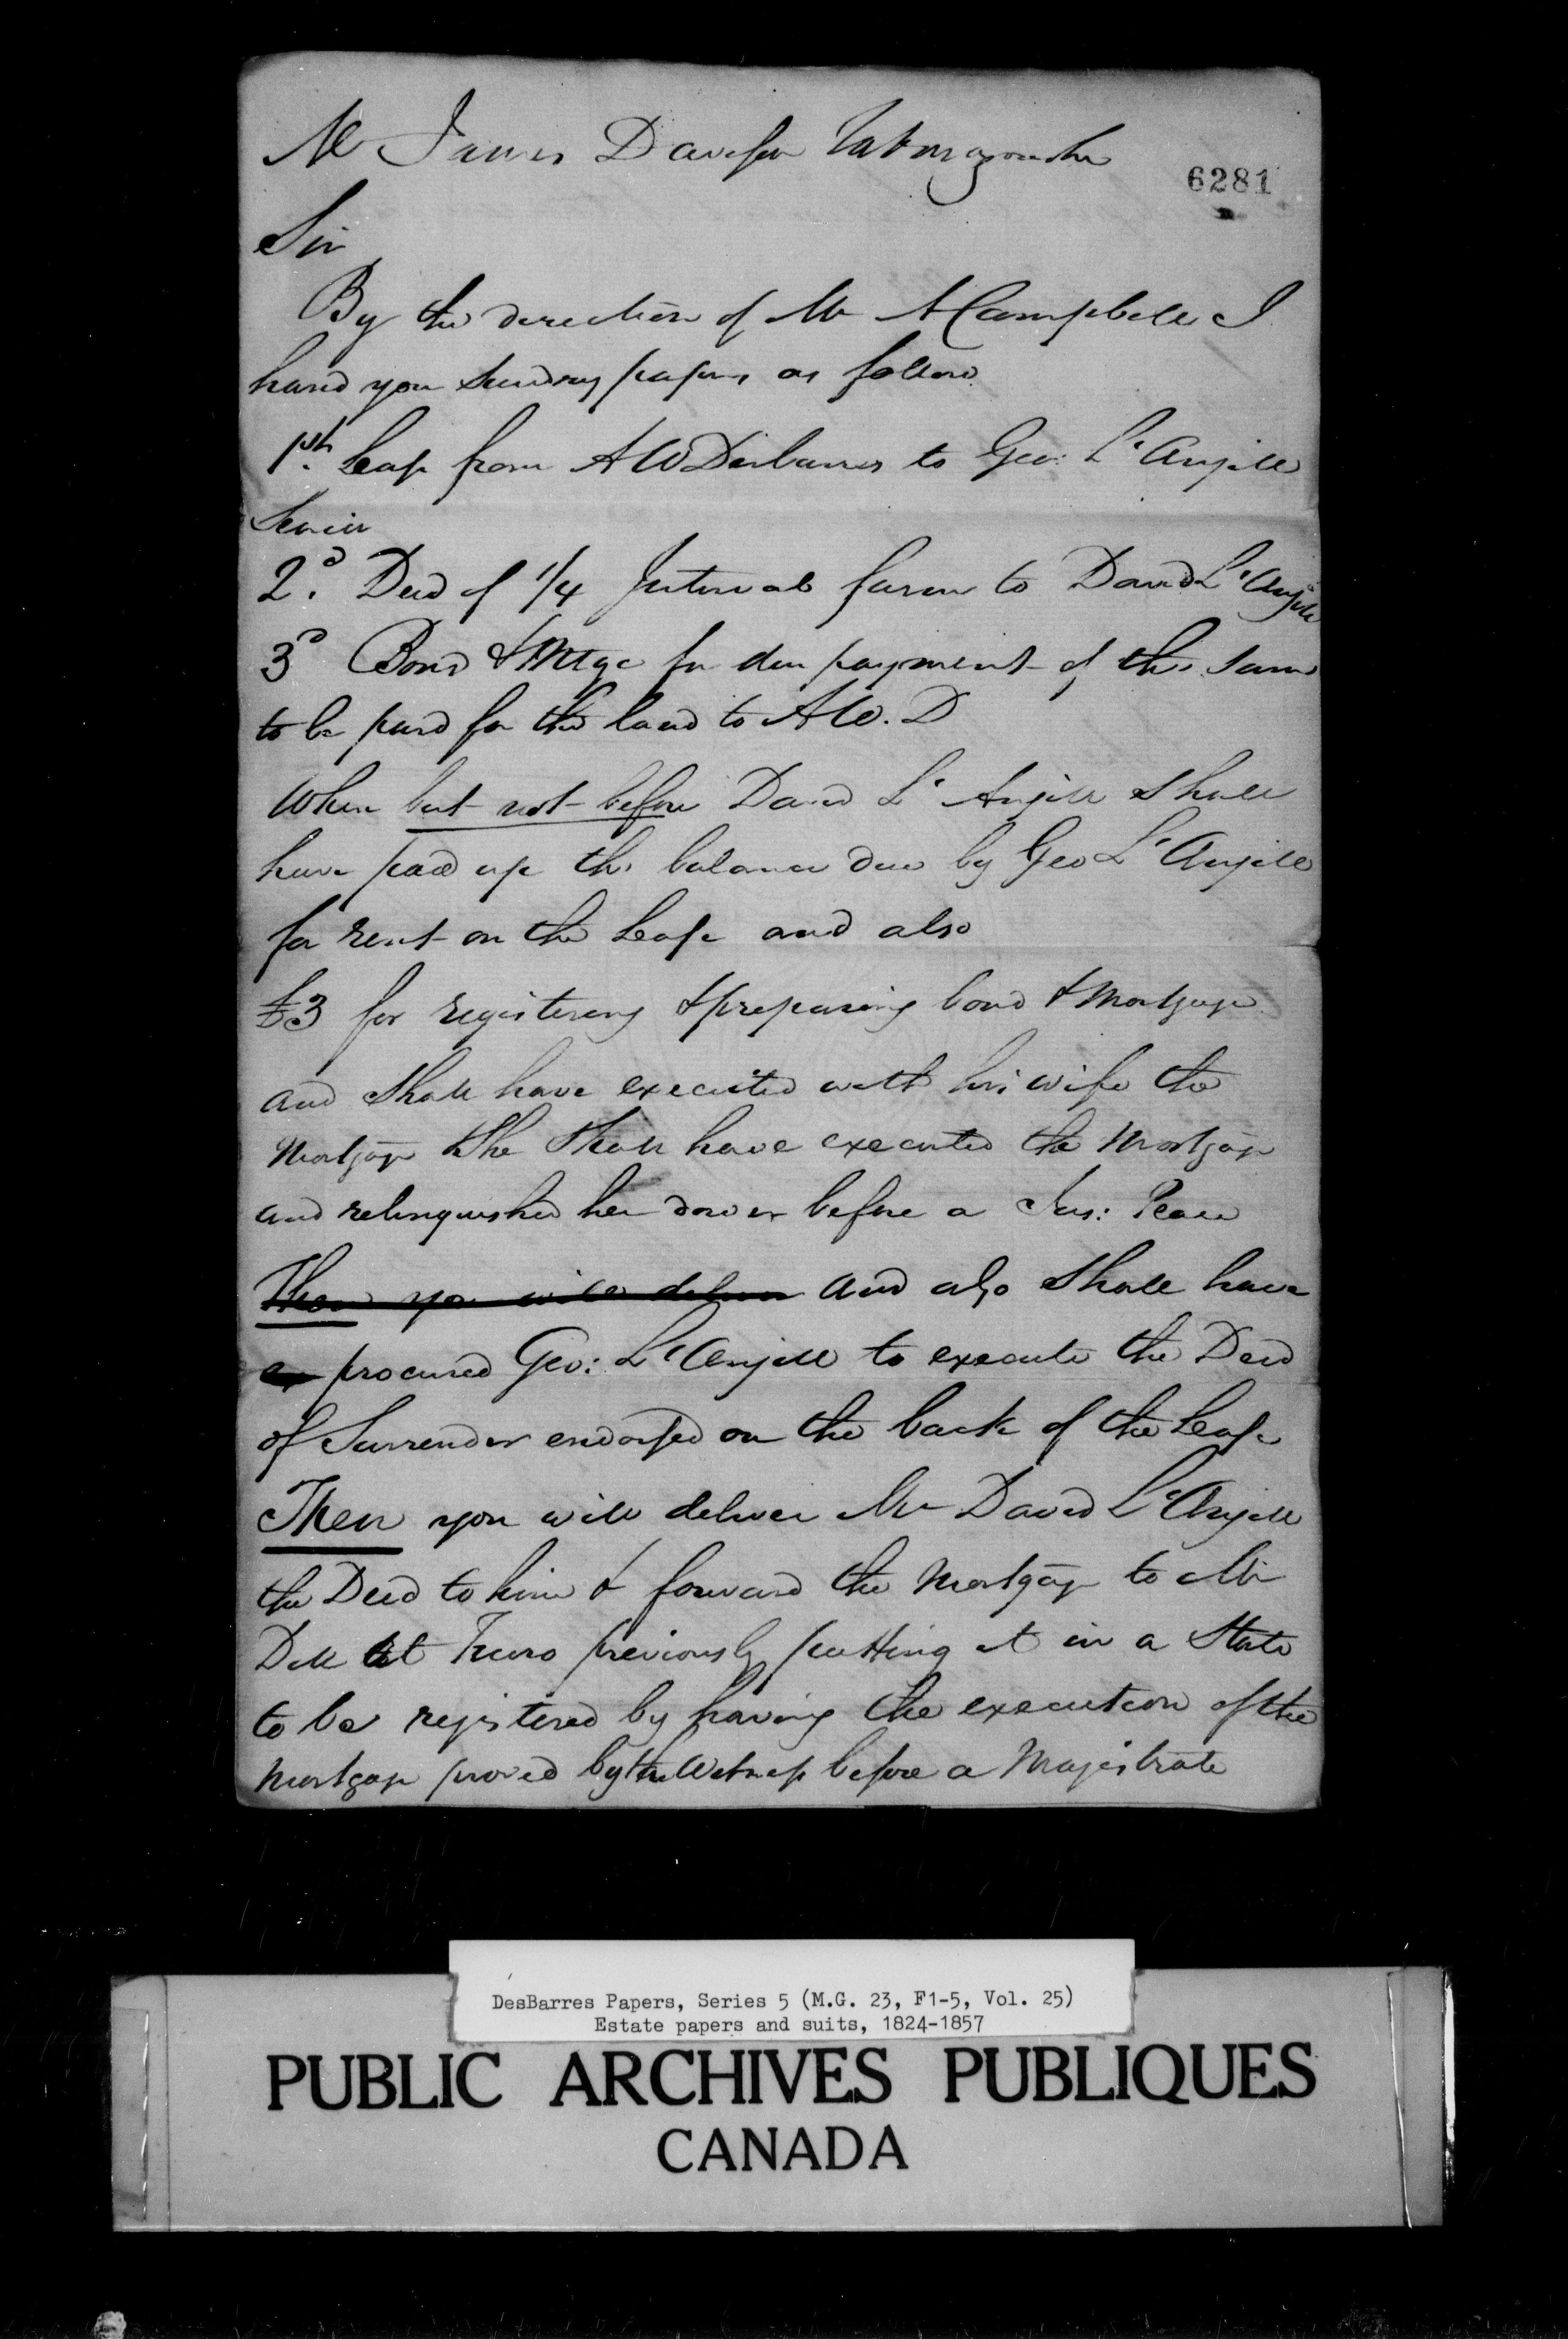 Mr James Davison Tatmagouche
6281
Sir
By the direction of Mr A Campbell I
hand you sundry papers as follows
1st. Lease from A W Desbarres to Geo: L'Angill
Senior
2d. Deed of 1/4 Interval farm to David L'Angill
3d Bond & Mtge for due payment of the sum
to be paid for the land to A W. D
When but not before David L'Angill shall
have paid up the balance due by Geo L'Angill
for rent on the Lease and also
£3 for registering & preparing bond & Mortgage
and shall have executed with his wife the
Mortgage & She shall have executed the Mortgage
and relinquished her dower before a Jus: Peace
Then you will deliver and also shall have
ex procured Geo: L'Angill to execute the Deed
of Surrender endorsed on the back of the Lease
Then you will deliver Mr David L'Angill
the Deed to him & forward the Mortgage to Mr
Dill at Truro previously putting it in a State
to be registered by having the execution of the
Mortgage proved by the Witness before a Magistrate
DesBarres Papers, Series 5 (M.G. 23, F1-5, Vol. 25)
Estate papers and suits, 1824-1857
PUBLIC ARCHIVES PUBLIQUES
CANADA